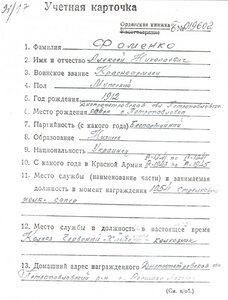 Учетная карточка
Орденская книжка
Е № 019602
1. Фамилия Фоменко
2. Имя и отчество Алексей Николаевич
3. Воинское звание Красноармеец
4. Пол Мужской
5. Год рождения 1912
Место рождения
7. Партийность (с какого года) Беспартийный
8. Образование Низшее
9. Национальность Украинец
10. С какого года в Красной Армии
11. Место службы (наименование части) и занимаемая
должность в момент награждения 1054 стрелковый
полк, сапер
12. Место службы и должность в настоящее время
Колхоз
13. Домашний адрес награжденного Днепропетровской обл.
(См. н/об.)